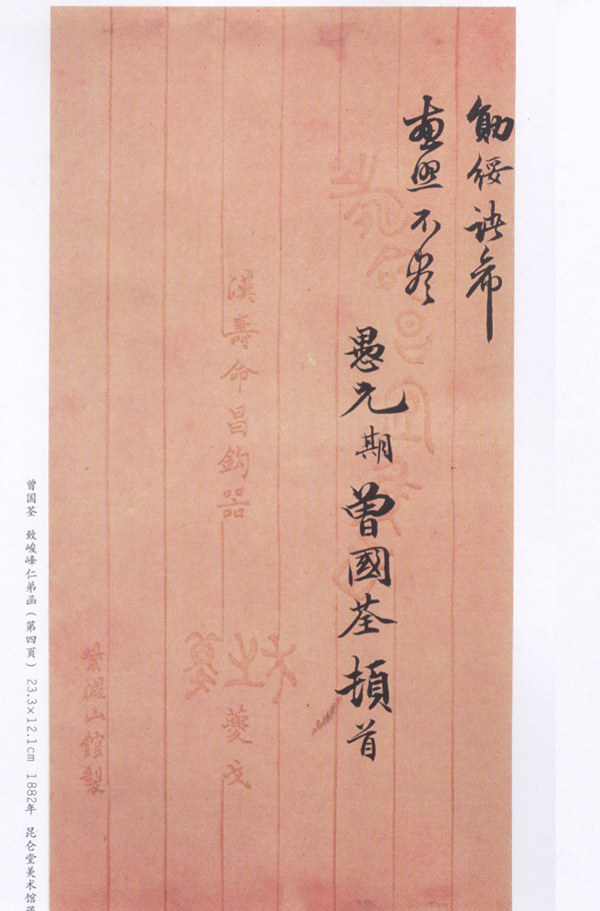 勛綏諸希
亮照不盡
愚兄期曾國荃頓首
漢壽命昌鈎器
夔戈
紫微山館製
曾国荃 致峻峰仁弟函（第四頁） 23.3×12.1cm 1882年 昆仑堂美术馆藏